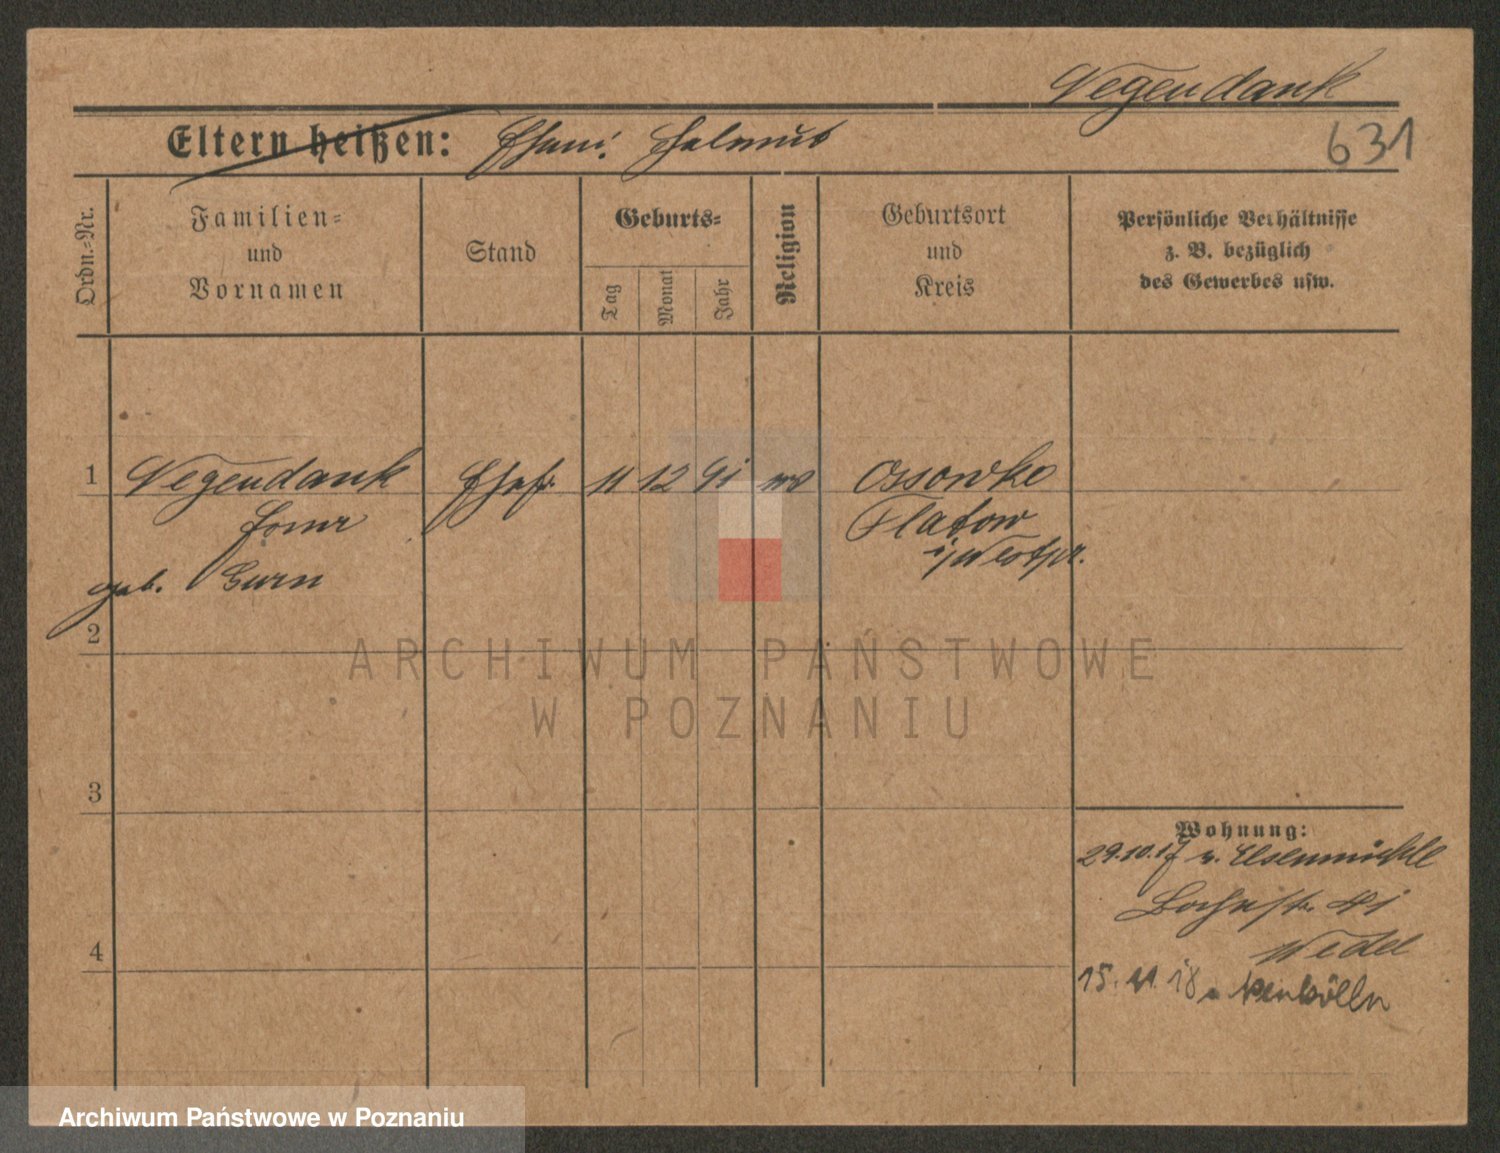 Wegendank
Eltern heißen: Ehem: Helmut
631
Ordn.-Nr.
Familien-
und
Vornamen
Stand
Geburts-
Tag
Monat
Jahr
Religion
Geburtsort
und
Kreis
Persönliche Verhältnisse
z. B. bezüglich
des Gewerbes usw.
1 Wegendank Ehefr. 11 12 91 Ossowke
Flatow
i/Westpr.
geb. Gurn
2
ARCHIWUM PAŃSTWOWE
W POZNANIU
3
Wohnung:
29.10.17 v. Elsenmühle
41
Wedel
4
15. 11. 18 Neukölln
Archiwum Państwowe w Poznaniu